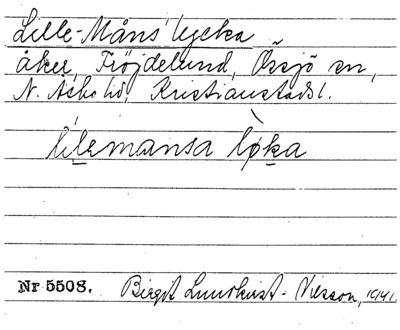 Lille-Måns' lycka
åker, Fröjdelund, Össjö sn,
N. Åsbo hd, Kristianstads l.
lilemansa løka
Nr 5508. Birgit Lundkvist-Nilsson, 1941